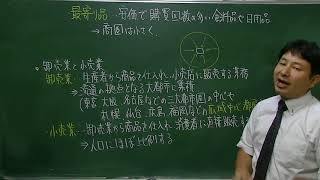 最寄り品…安価で購買回数の多い食料品や日用品
⇒商圏は小さく
卸売業と小売業
卸売業…生産者から商品を仕入れ、小売店に販売する業務
⇒流通の拠点となる大都市に累積
(東京、大阪、名古屋などの三大都市圏の中心や
札幌、仙台、広島、福岡などの広域中心都市
小売業…卸売業から商品を仕入れ、消費者に直接販売する
⇒人口にほぼ比例する